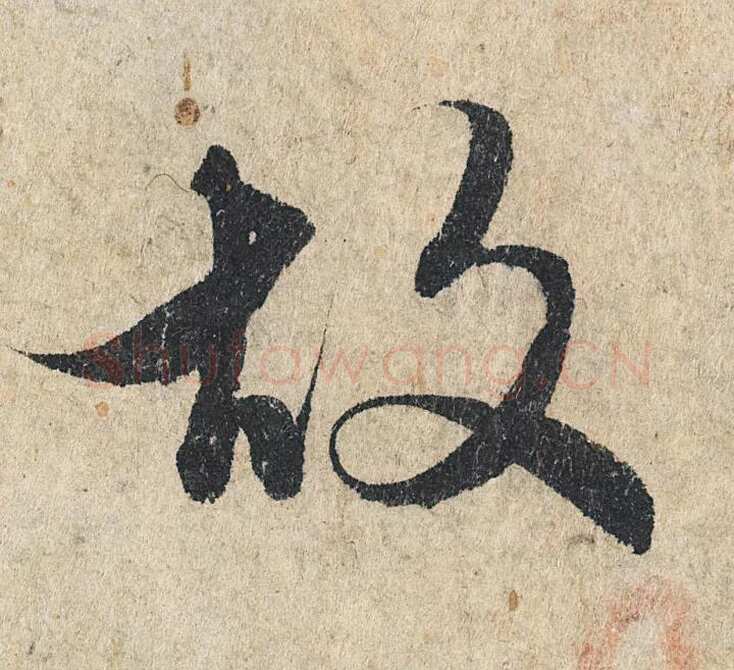 故
Shufawang.CN